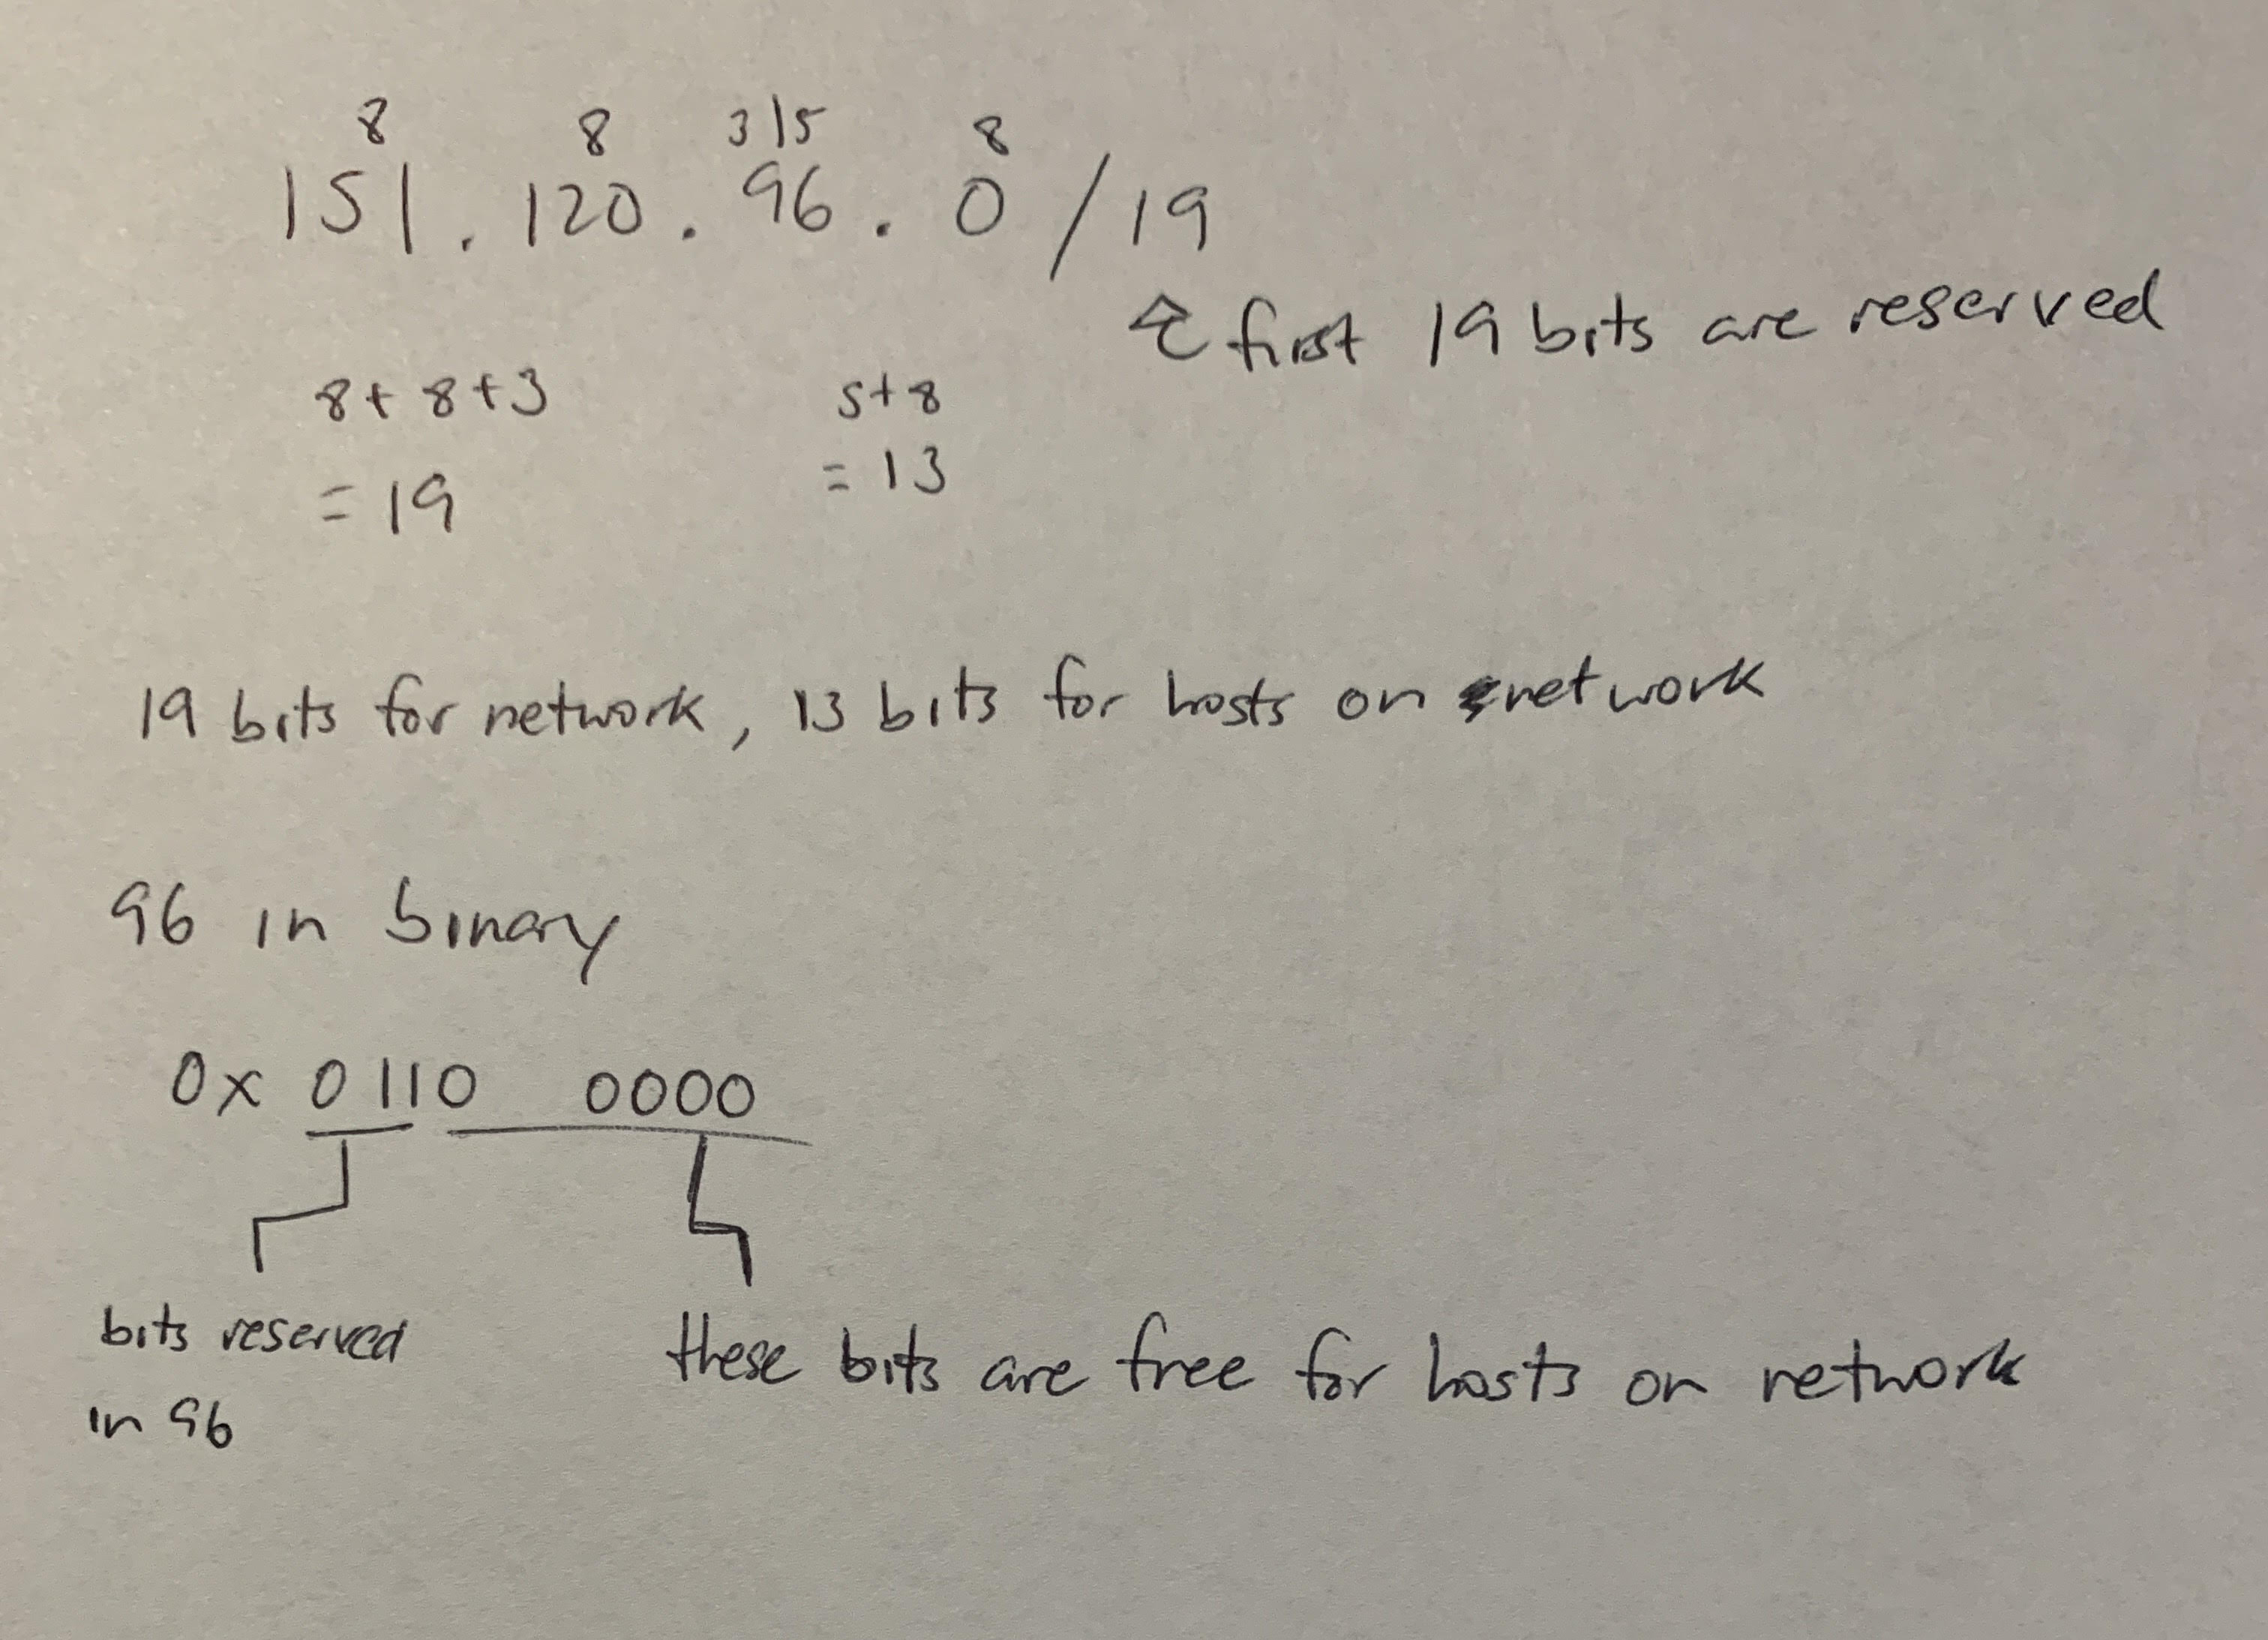 8 8 3|5 8
151.120.96.0/19
first 19 bits are reserved
8+8+3 5+8
=19 =13
19 bits for network, 13 bits for hosts on network
96 in binary
0x 0110 0000
bits reserved these bits are free for hosts on network
in 96